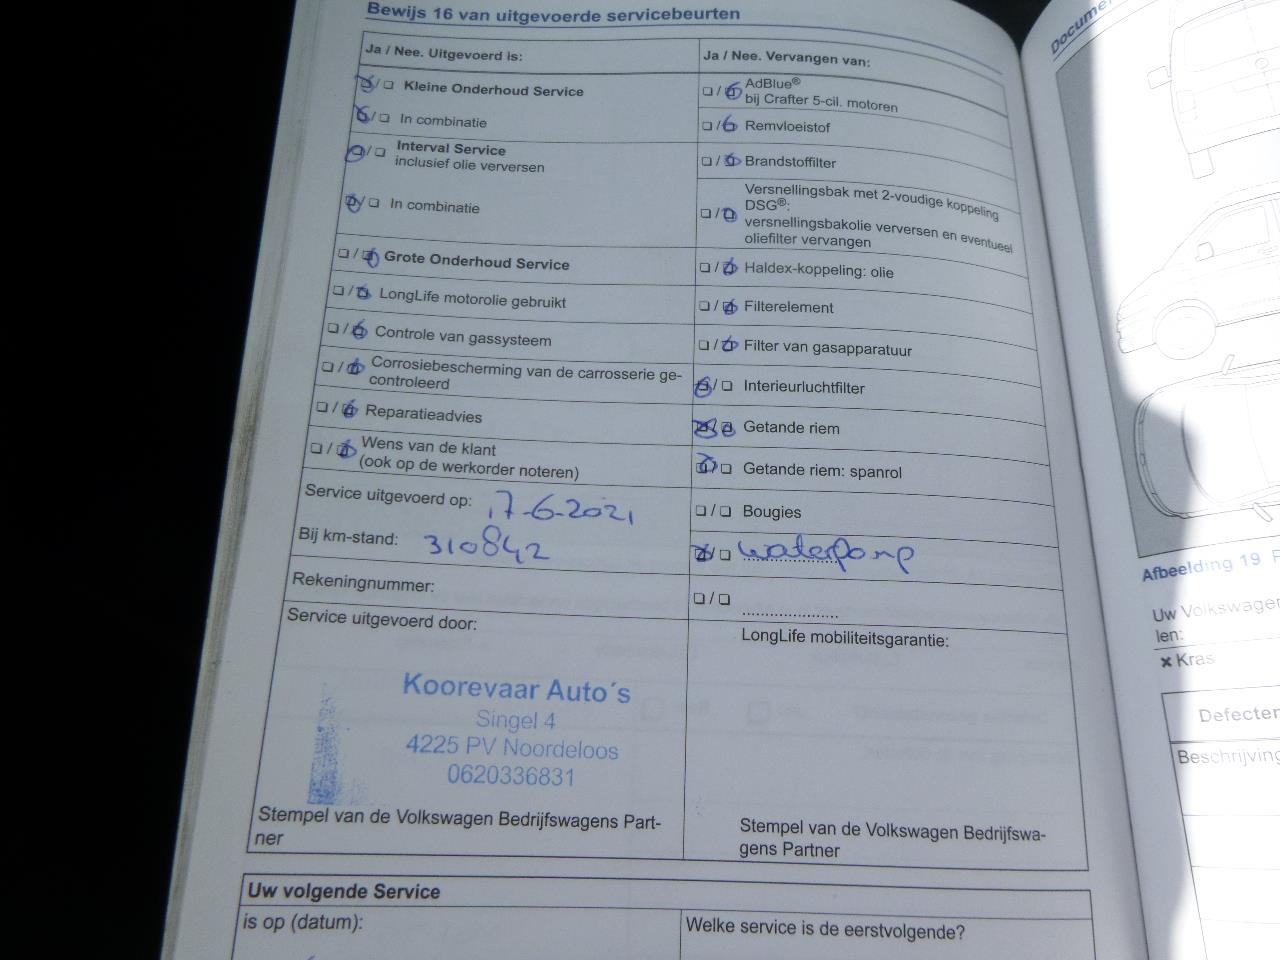 Bewijs 16 van uitgevoerde servicebeurten
Ja / Nee. Uitgevoerd is:
❏/❏ Kleine Onderhoud Service
❏/❏ In combinatie
❏/❏ Interval Service
inclusief olie verversen
❏/❏ In combinatie
❏/❏ Grote Onderhoud Service
❏/❏ LongLife motorolie gebruikt
❏/❏ Controle van gassysteem
❏/❏ Corrosiebescherming van de carrosserie ge-
controleerd
❏/❏ Reparatieadvies
❏/❏ Wens van de klant
(ook op de werkorder noteren)
Service uitgevoerd op: 17-6-2021
Bij km-stand: 310842
Rekeningnummer:
Service uitgevoerd door:
Koorevaar Auto´s
Singel 4
4225 PV Noordeloos
0620336831
Stempel van de Volkswagen Bedrijfswagens Part-
ner
Ja / Nee. Vervangen van:
❏/❏ AdBlue®
bij Crafter 5-cil. motoren
❏/❏ Remvloeistof
❏/❏ Brandstoffilter
❏/❏ Versnellingsbak met 2-voudige koppeling
DSG®:
versnellingsbakolie verversen en eventueel
oliefilter vervangen
❏/❏ Haldex-koppeling: olie
❏/❏ Filterelement
❏/❏ Filter van gasapparatuur
❏/❏ Interieurluchtfilter
❏/❏ Getande riem
❏/❏ Getande riem: spanrol
❏/❏ Bougies
❏/❏ waterpomp
❏/❏ ....................
LongLife mobiliteitsgarantie:
Stempel van de Volkswagen Bedrijfswa-
gens Partner
Uw volgende Service
is op (datum):
Welke service is de eerstvolgende?
Afbeelding 19
Uw Volkswagen
len:
✖ Kras
Defecten
Beschrijving